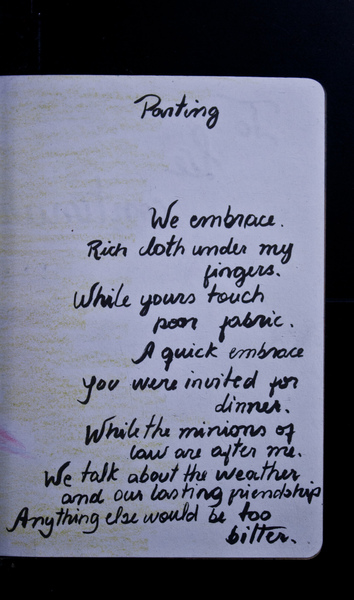 Parting
We embrace.
Rich cloth under my
fingers.
While yours touch
poor fabric.
A quick embrace
you were invited for
dinner.
While the minions of
law are after me.
We talk about the weather
and our lasting friendship
Anything else would be too
bitter.